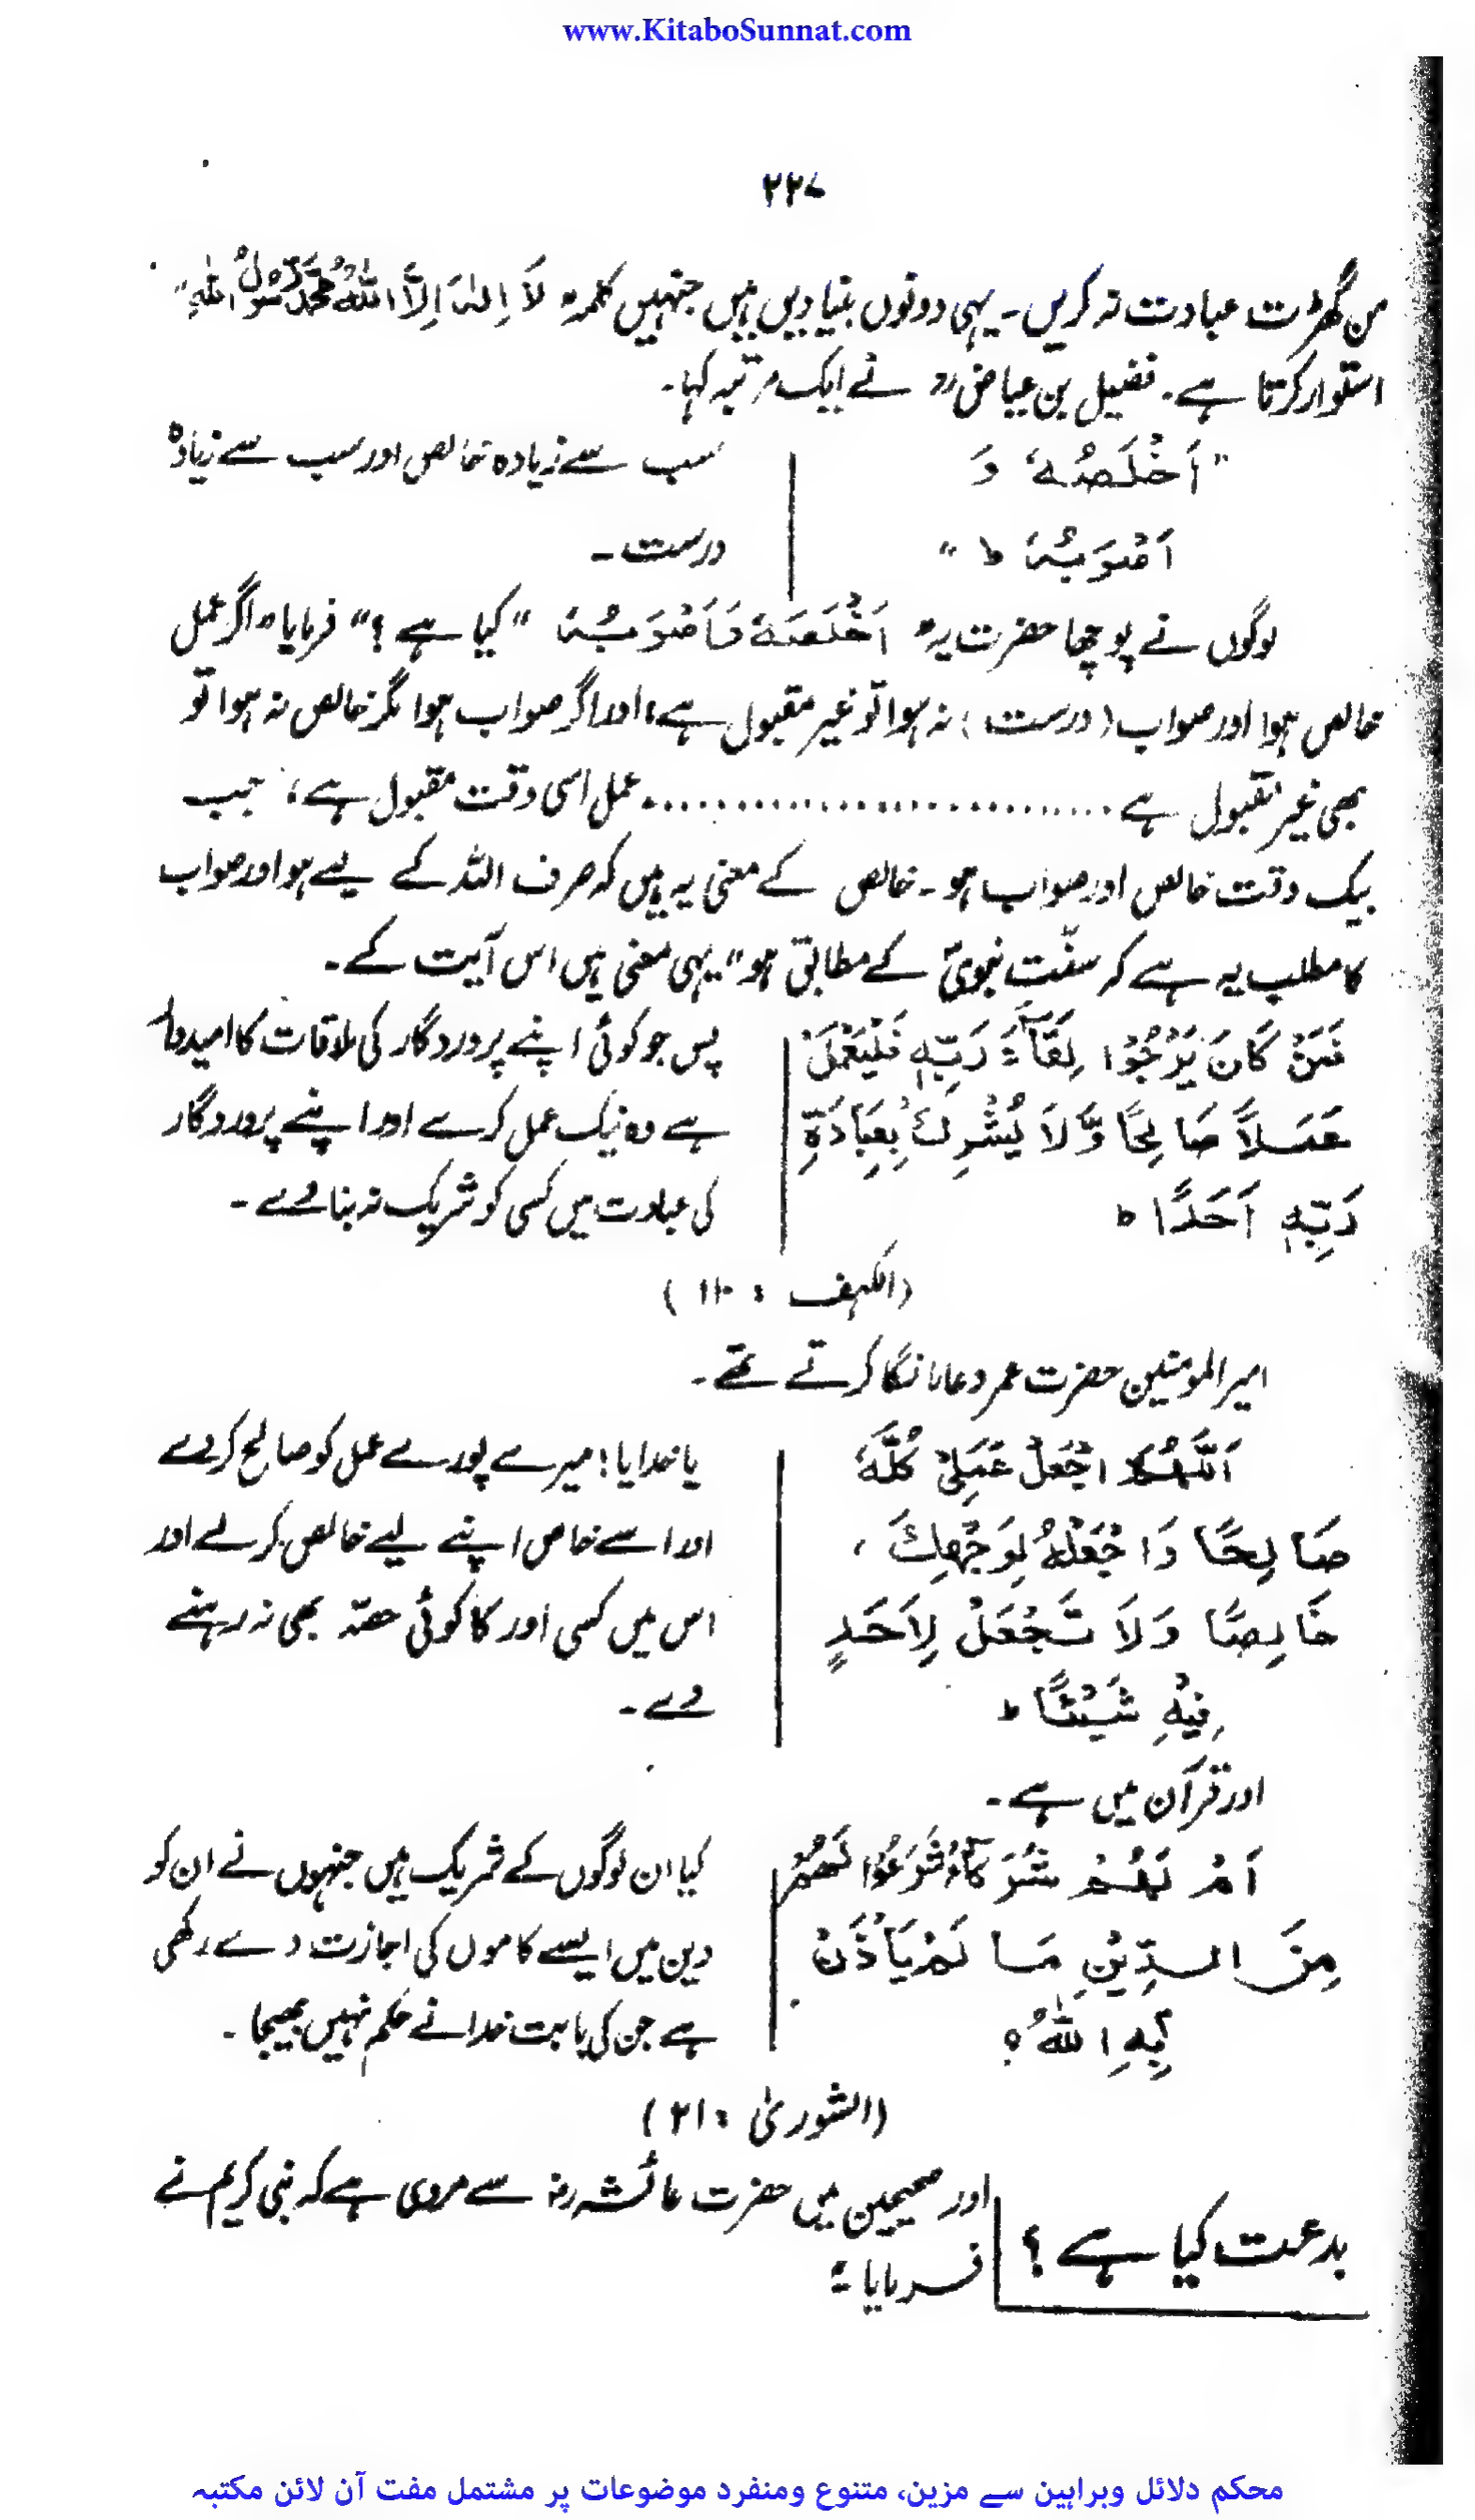 www.KitaboSunnat.com
۲۲۷
من گھڑت عبادت نہ کریں۔ یہی دونوں بنیادیں ہیں جنہیں کلمہ " لَا اِلٰہَ اِلَّا اللّٰہُ مُحَمَّدٌ رَّسُوْلُ اللّٰہِ "
استوار کرتا ہے۔ فضیل بن عیاضؒ نے ایک مرتبہ کہا۔
" اَخْلَصُہٗ وَ
اَصْوَبُہٗ ط "
سب سے زیادہ خالص اور سب سے زیادہ
درست۔
لوگوں نے پوچھا حضرت یہ " اَخْلَصَہٗ وَاَصْوَبُہٗ " کیا ہے ؟" فرمایا " اگر عمل
خالص ہوا اور صواب (درست) نہ ہوا تو غیر مقبول ہے، اور اگر صواب ہوا مگر خالص نہ ہوا تو
بھی غیر مقبول ہے ........................... عمل اسی وقت مقبول ہے، جب
بیک وقت خالص اور صواب ہو۔ خالص کے معنی یہ ہیں کہ صرف اللہ کے لیے ہو اور صواب
کا مطلب یہ ہے کہ سنّتِ نبویؐ کے مطابق ہو" یہی معنی ہیں اس آیت کے۔
فَمَنْ کَانَ یَرْجُوْا لِقَآءَ رَبِّہٖ فَلْیَعْمَلْ
عَمَلًا صَالِحًا وَّلَا یُشْرِكْ بِعِبَادَةِ
رَبِّہٖ اَحَدًا ط
پس جو کوئی اپنے پروردگار کی ملاقات کا امیدوار
ہے وہ نیک عمل کرے اور اپنے پروردگار
کی عبادت میں کسی کو شریک نہ بناوے۔
(الکہف : ۱۱۰)
امیر المومنین حضرت عمر دعا مانگا کرتے تھے۔
اَللّٰھُمَّ اجْعَلْ عَمَلِیْ کُلَّہٗ
صَالِحًا وَاجْعَلْهُ لِوَجْھِكَ ،
خَالِصًا وَلَا تَجْعَلْ لِاَحَدٍ
فِیْهِ شَیْئًا ط
یا خدایا! میرے پورے عمل کو صالح کر دے
اور اسے خاص اپنے لیے خالص کر لے اور
اس میں کسی اور کا کوئی حصّہ بھی نہ رہنے
دے۔
اور قرآن میں ہے۔
اَمْ لَھُمْ شُرَکَآءُ شَرَعُوْا لَھُمْ
مِنَ الدِّیْنِ مَا لَمْ یَأْذَنْ
بِهِ اللّٰهُ ؟
کیا ان لوگوں کے شریک ہیں جنہوں نے ان کو
دین میں ایسے کاموں کی اجازت دے رکھی
ہے جن کی بابت خدا نے حکم نہیں بھیجا۔
(الشوریٰ : ۲۱)
بدعت کیا ہے ؟
اور صحیحین میں حضرت عائشہؓ سے مروی ہے کہ نبی کریم نے
فرمایا :
محکم دلائل وبراہین سے مزین، متنوع ومنفرد موضوعات پر مشتمل مفت آن لائن مکتبہ